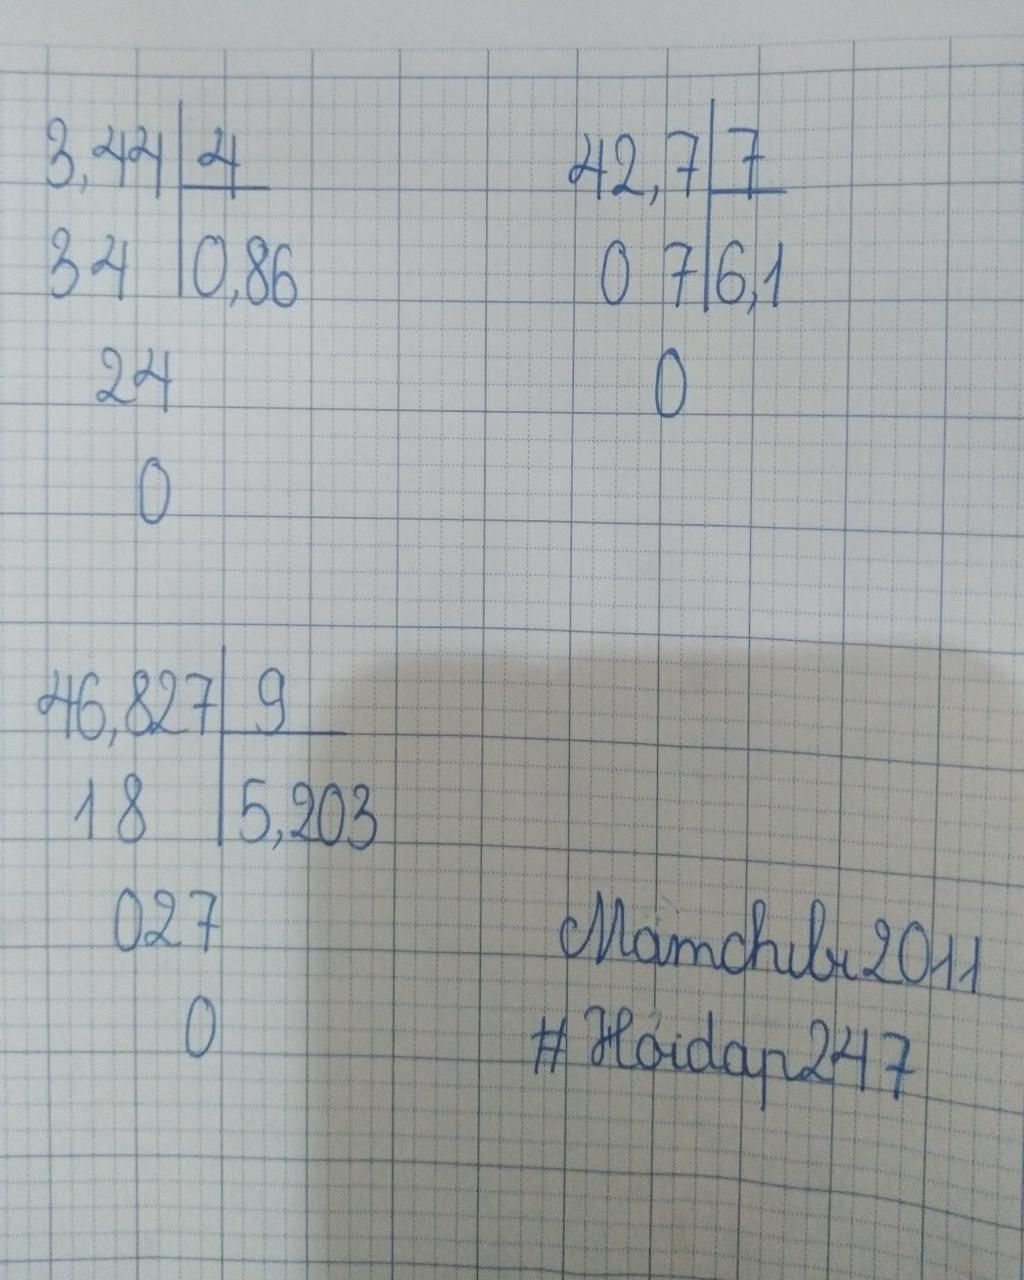 3,44 4
34 0,86
24
0
42,7 7
0 7 6,1
0
46,827 9
18 5,203
027
0
#Hoidap247